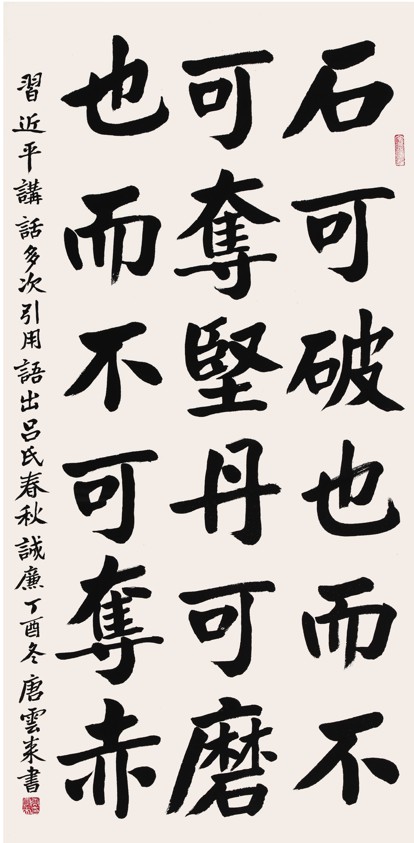 石可破也而不
可奪堅丹可磨
也而不可奪赤
習近平講話多次引用語出吕氏春秋誠廉丁酉冬唐雲来書